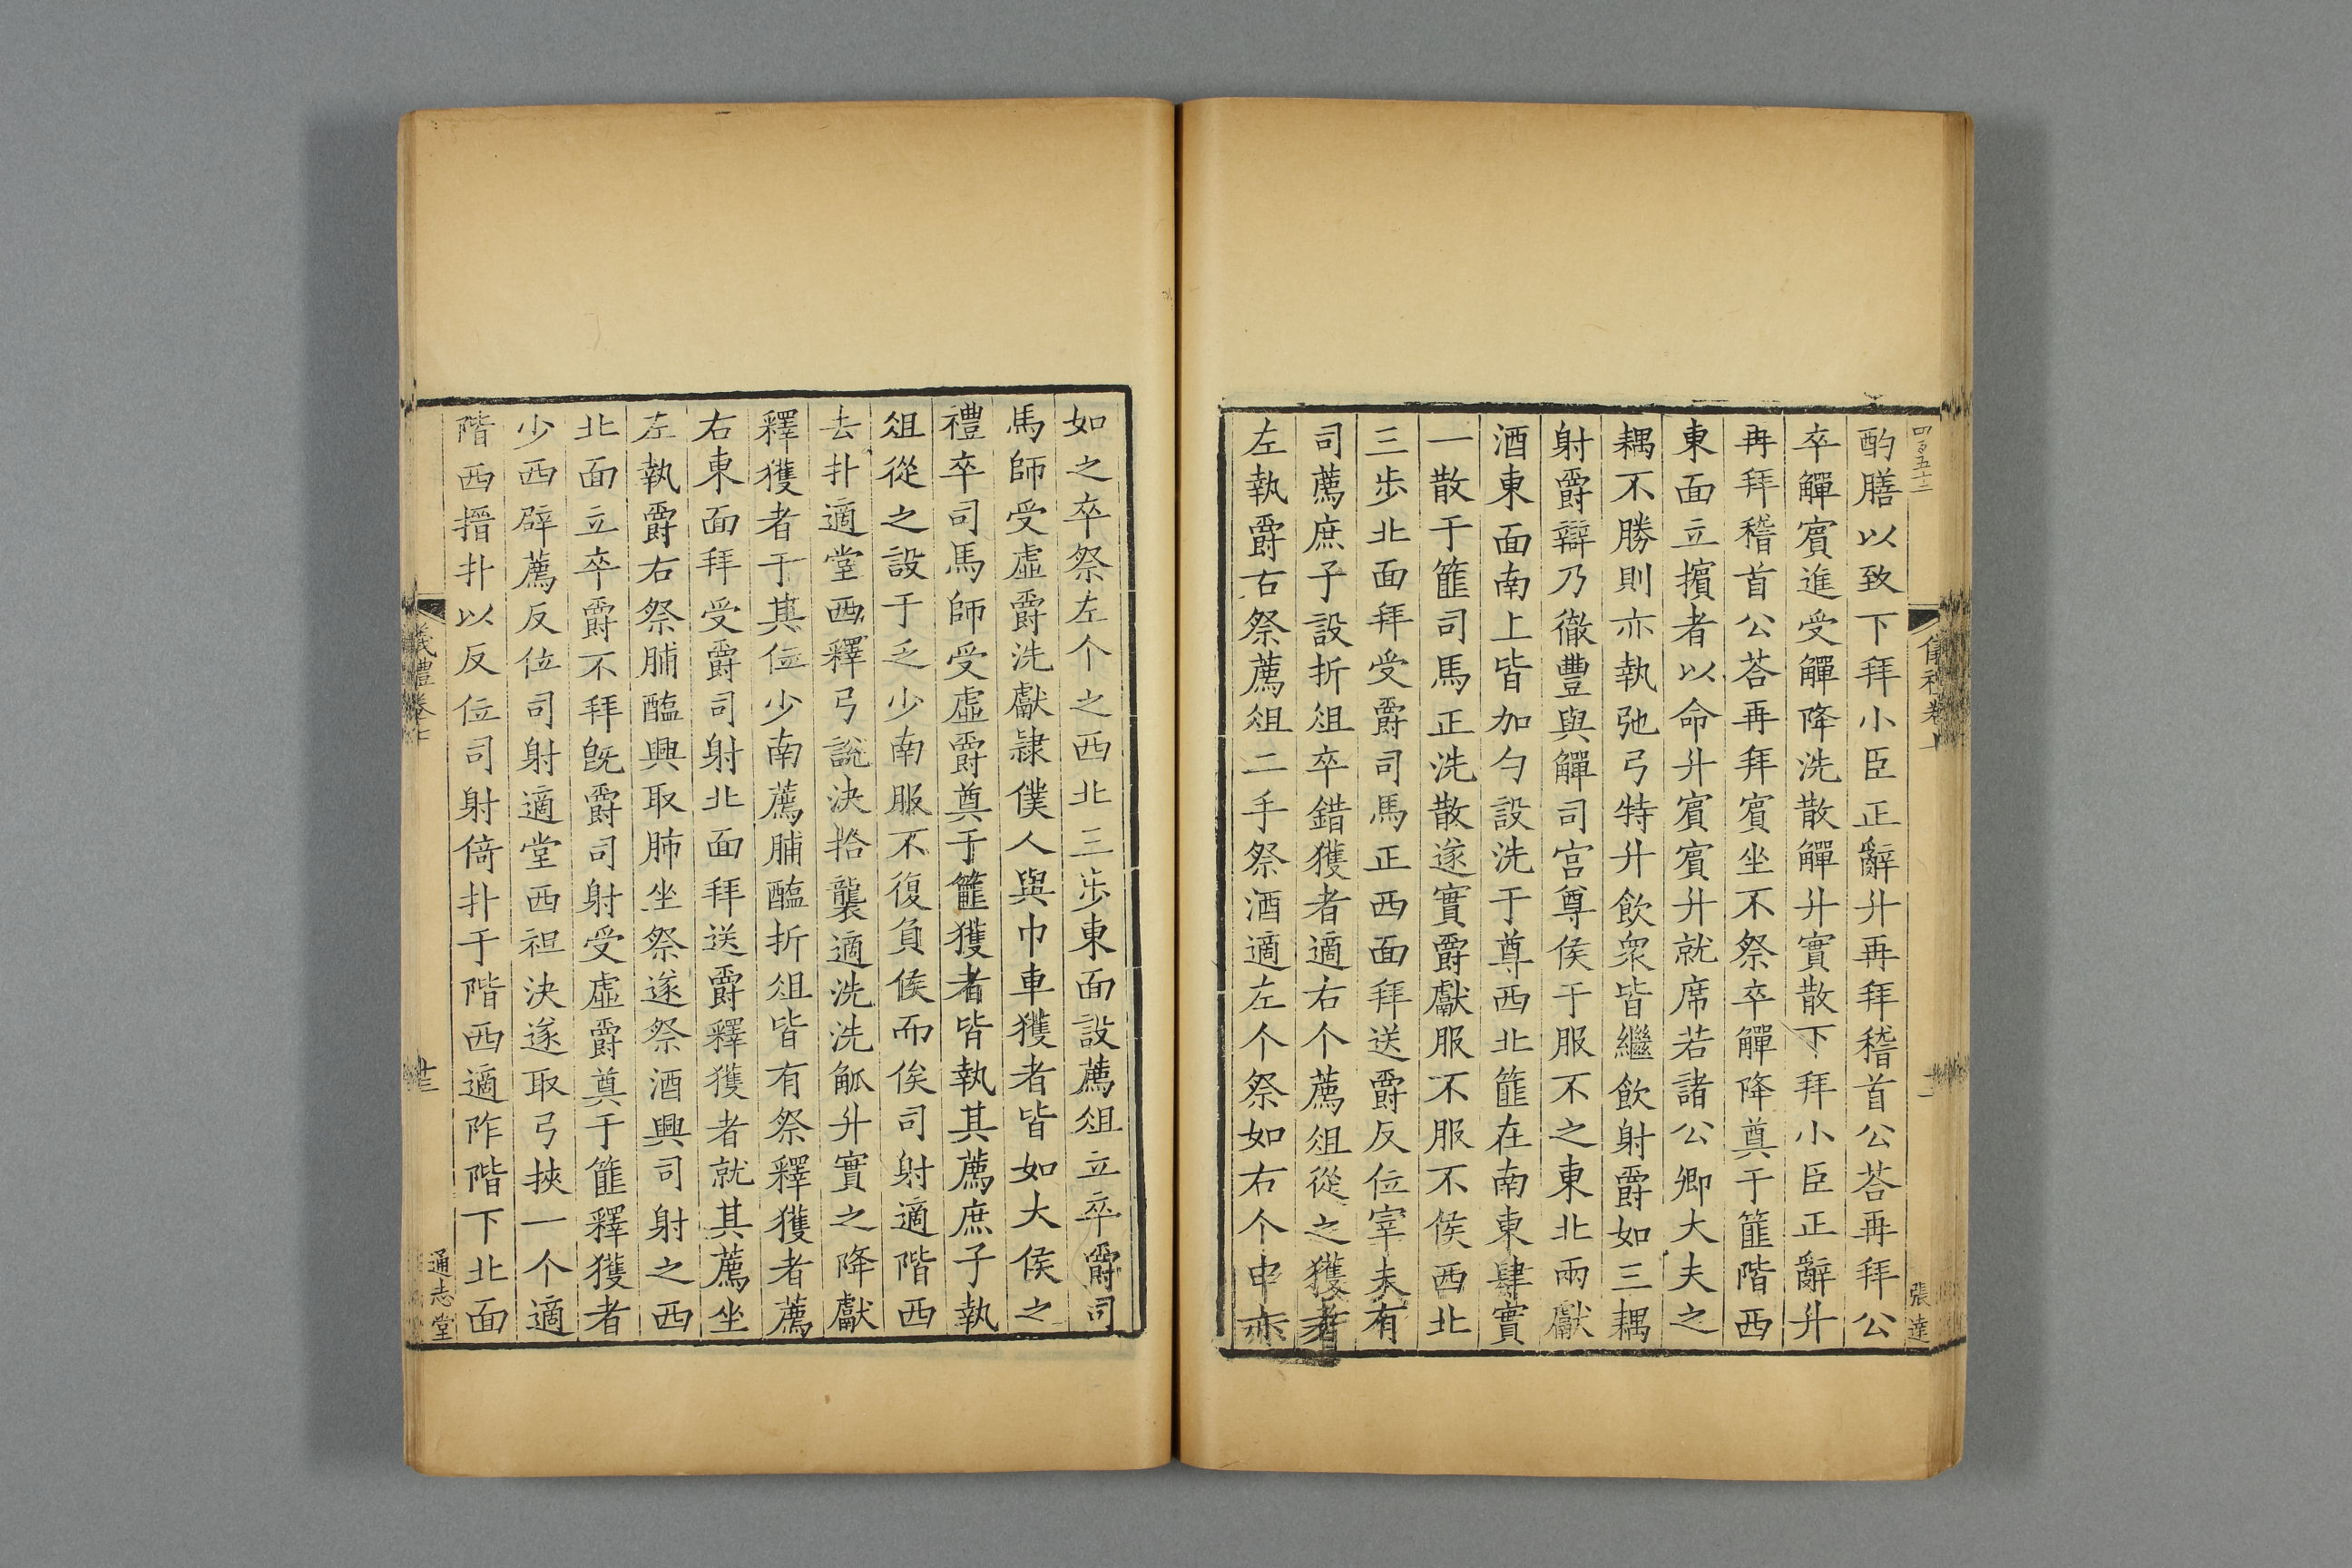 四百五十二
酌膳以致下拜小臣正辭升再拜稽首公荅再拜公
卒觶賔進受觶降洗散觶升實散下拜小臣正辭升
再拜稽首公荅再拜賔坐不祭卒觶降奠于篚階西
東面立擯者以命升賔賔升就席若諸公卿大夫之
耦不勝則亦執弛弓特升飲衆皆繼飲射爵如三耦
射爵辯乃徹豐與觶司宫尊侯于服不之東北兩獻
酒東面南上皆加勺設洗于尊西北篚在南東肆實
一散于篚司馬正洗散遂實爵獻服不服不侯西北
三步北面拜受爵司馬正西面拜送爵反位宰夫有
司薦庶子設折俎卒錯獲者適右个薦俎從之獲者
左執爵右祭薦俎二手祭酒適左个祭如右个中亦
張達
如之卒祭左个之西北三步東面設薦俎立卒爵司
馬師受虛爵洗獻隷僕人與巾車獲者皆如大侯之
禮卒司馬師受虛爵奠于篚獲者皆執其薦庶子執
俎從之設于乏少南服不復負侯而俟司射適階西
去扑適堂西釋弓說決拾襲適洗洗觚升實之降獻
釋獲者于其位少南薦脯醢折俎皆有祭釋獲者薦
右東面拜受爵司射北面拜送爵釋獲者就其薦坐
左執爵右祭脯醢興取肺坐祭遂祭酒興司射之西
北面立卒爵不拜旣爵司射受虛爵奠于篚釋獲者
少西辟薦反位司射適堂西袒決遂取弓挾一个適
階西搢扑以反位司射倚扑于階西適阼階下北面
儀禮卷七
廿三
通志堂